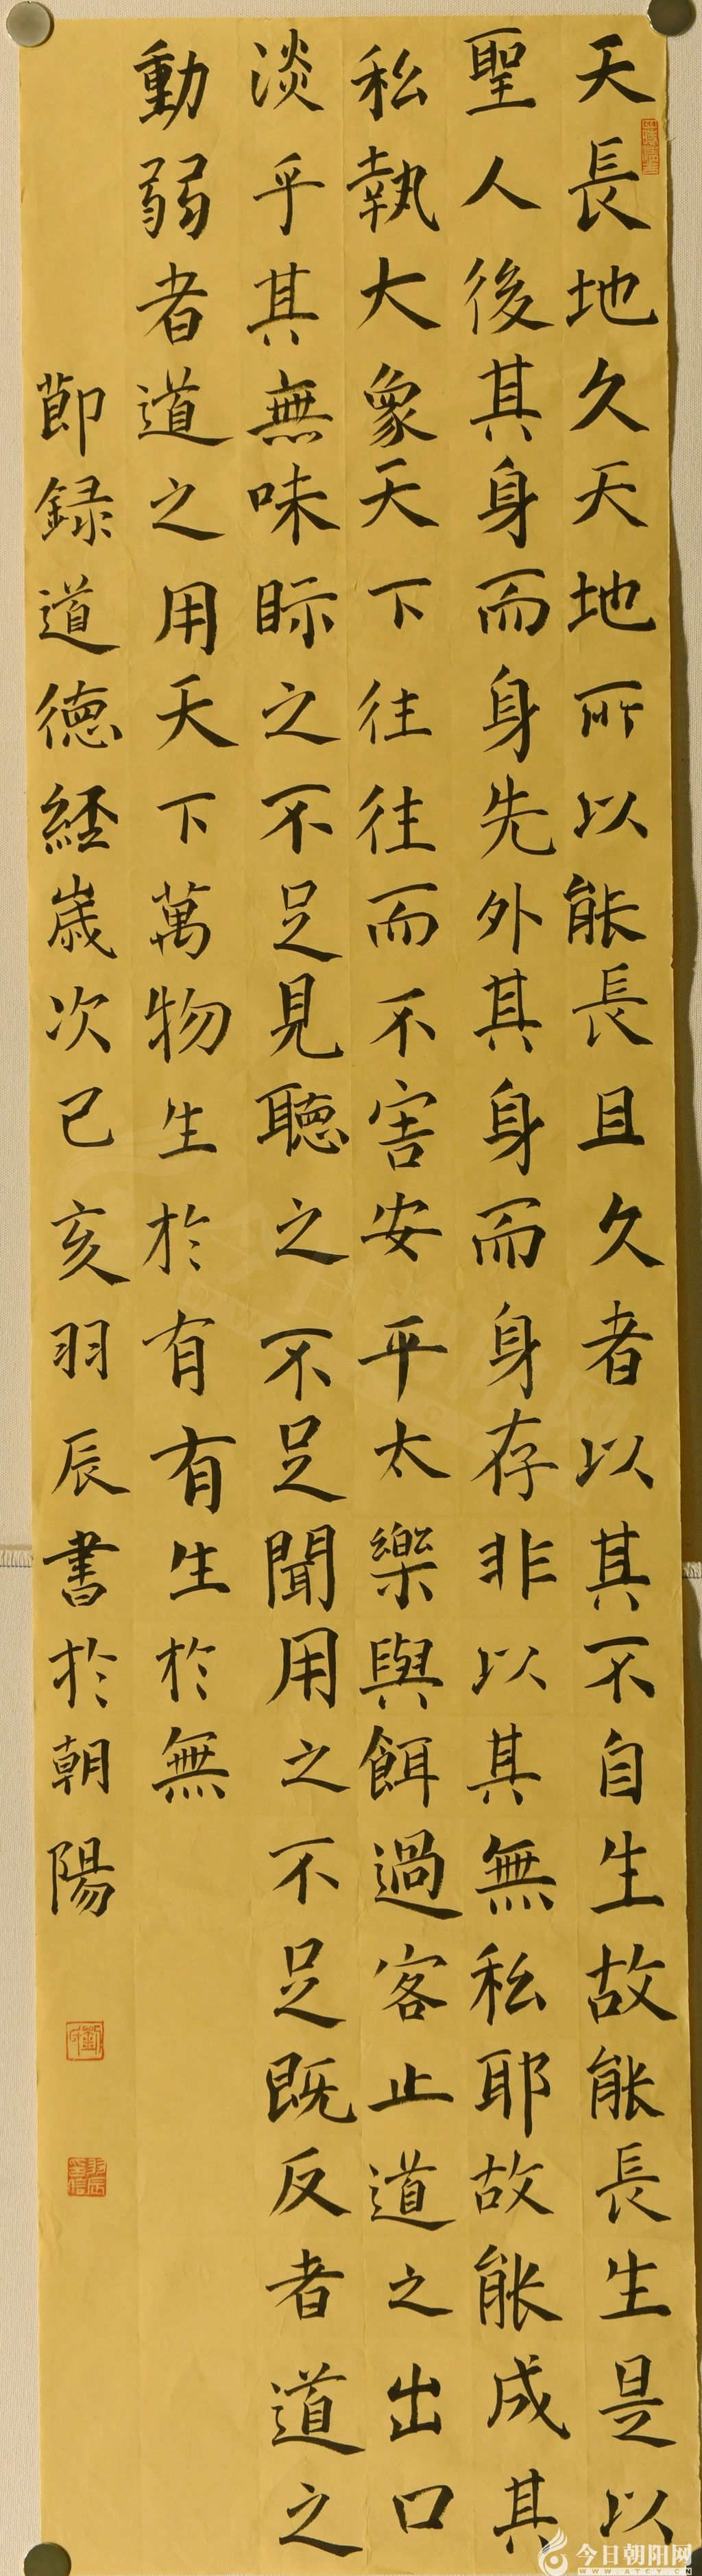 天長地久天地所以能長且久者以其不自生故能長生是以
聖人後其身而身先外其身而身存非以其無私耶故能成其
私執大象天下往往而不害安平太樂與餌過客止道之出口
淡乎其無味眎之不足見聽之不足聞用之不足既反者道之
動弱者道之用天下萬物生於有有生於無
節録道德經歲次己亥羽辰書於朝陽
今日朝阳网
WWW.ATCY.CN